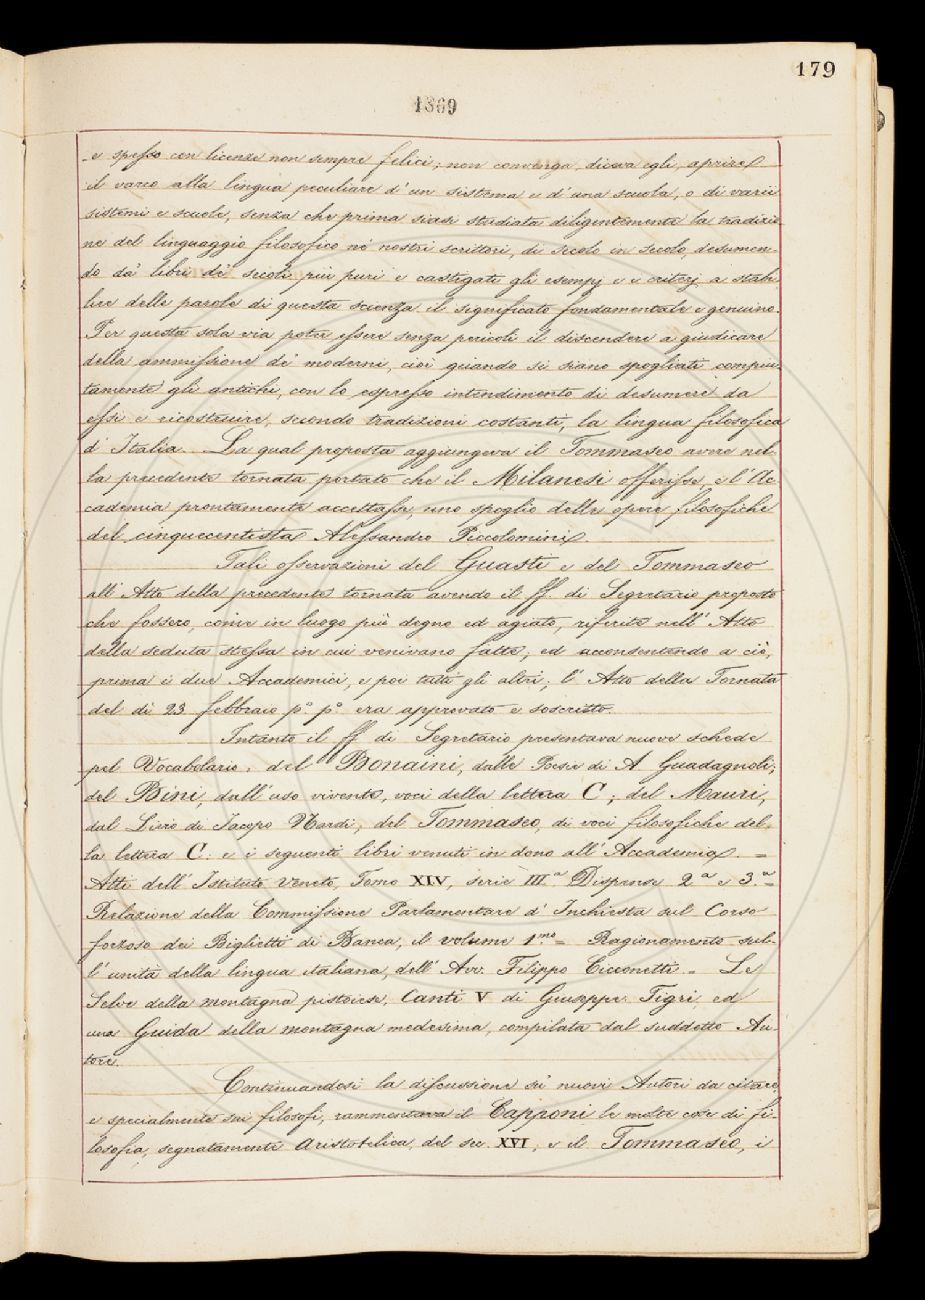 179
1869
e spesso con licenze non sempre felici; non convenga, diceva egli, aprire
il varco alla lingua peculiare d'un sistema e d'una scuola, o di varii
sistemi e scuole, senza che prima siasi studiata diligentemente la tradizio
ne del linguaggio filosofico ne' nostri scrittori, di secolo in secolo, desumen-
do da' libri de' secoli più puri e castigati gli esempj e i criterj a stabi
lire delle parole di questa scienza il significato fondamentale e genuino.
Per questa sola via poter essere senza pericoli il discendere a giudicare
della ammissione de' moderni, cioè quando si siano spogliati compiu-
tamente gli antichi, con lo espresso intendimento di desumere da
essi e ricostruire, secondo tradizioni costanti, la lingua filosofica
d'Italia. La qual proposta aggiungeva il Tommaseo avere nel-
la precedente tornata portato che il Milanesi offerisse, e l'Ac
cademia prontamente accettasse, uno spoglio delle opere filosofiche
del cinquecentista Alessandro Piccolomini.
Tali osservazioni del Guasti e del Tommaseo
all'Atto della precedente tornata avendo il ff. di Segretario proposto
che fossero, come in luogo più degno ed agiato, riferite nell'Atto
della seduta stessa in cui venivano fatte, ed acconsentendo a ciò,
prima i due Accademici, e poi tutti gli altri; l'Atto della Tornata
del dì 23 febbraio p.º p.º era approvato e soscritto.
Intanto il ff. di Segretario presentava nuove schede
pel Vocabolario: del Bonaini, dalle Poesie di A. Guadagnoli;
del Bini, dall'uso vivente, voci della lettera C; del Mauri,
dal Livio di Jacopo Nardi; del Tommaseo, di voci filosofiche del-
la lettera C: e i seguenti libri venuti in dono all'Accademia. =
Atti dell'Istituto Veneto, Tomo XIV, serie III.ª Dispense 2.ª e 3.ª =
Relazione della Commissione Parlamentare d'Inchiesta sul Corso
forzoso dei Biglietti di Banca, il volume 1.mo = Ragionamento sul-
l'unità della lingua italiana, dell'Avv. Filippo Cicconetti. = Le
Selve della montagna pistoiese, Canti V di Giuseppe Tigri, ed
una Guida della montagna medesima, compilata dal suddetto Au-
tore.
Continuandosi la discussione su' nuovi Autori da citare,
e specialmente sui filosofi, rammentava il Capponi le molte cose di fi-
losofia, segnatamente Aristotelica, del sec. XVI; e il Tommaseo, i